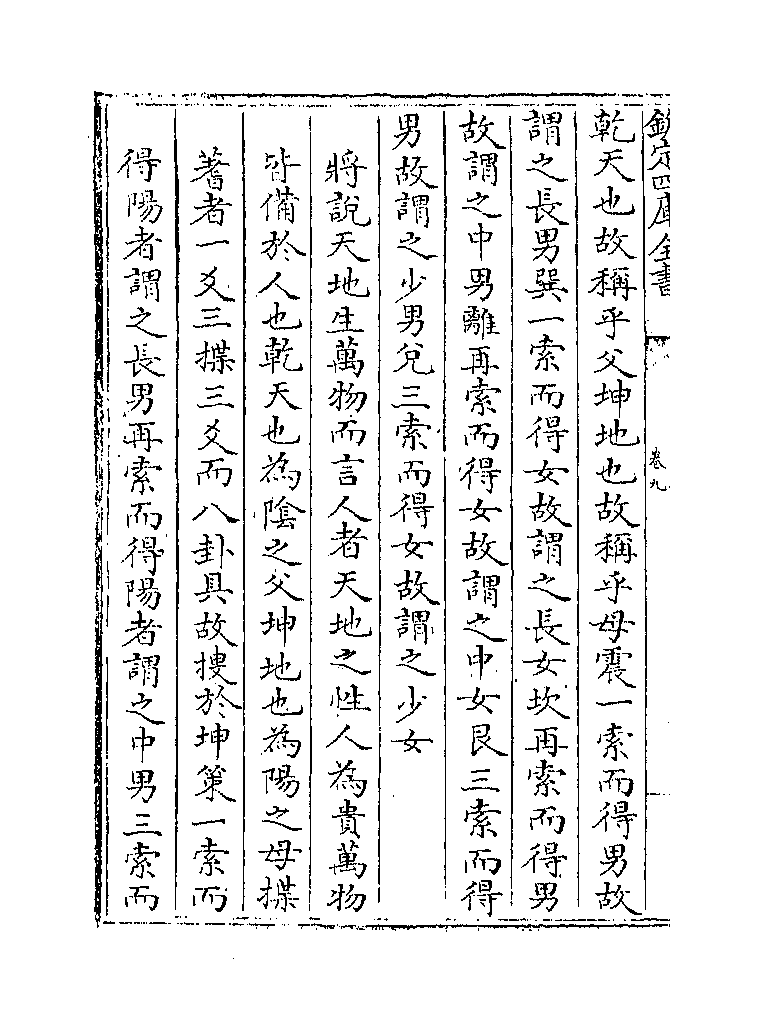 欽定四庫全書
卷九
乾天也故稱乎父坤地也故稱乎母震一索而得男故
謂之長男巽一索而得女故謂之長女坎再索而得男
故謂之中男離再索而得女故謂之中女艮三索而得
男故謂之少男兌三索而得女故謂之少女
將說天地生萬物而言人者天地之性人為貴萬物
皆備於人也乾天也為陰之父坤地也為陽之母揲
蓍者一爻三揲三爻而八卦具故摟於坤策一索而
得陽者謂之長男再索而得陽者謂之中男三索而